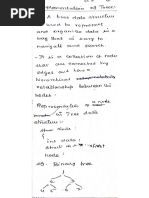 plementation of Tree:
A tree data structure
used to represent
and organise data in a
way that is easy to
navigate and search.
- It is a collection of node
that are connected by
edges and has a
hierarchical
relationship between the
nodes.
Representation of a node
data
structure:-
struct node
{
int data;
struct
node;
eg. Binary tree